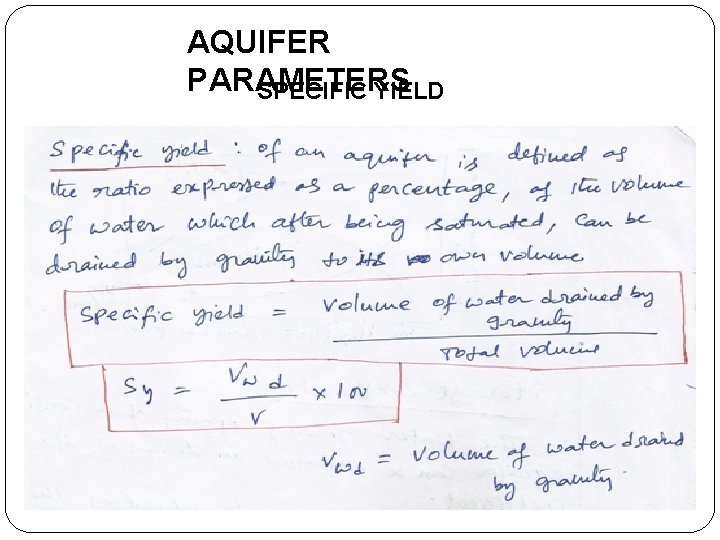 AQUIFER
PARAMETERS
SPECIFIC YIELD
Specific yield : of an aquifer is defined as
the ratio expressed as a percentage, of the volume
of water which after being saturated, can be
drained by gravity to its own volume.
Specific yield = Volume of water drained by
gravity
Total volume
Sy = Vwd x 100
V
Vwd = Volume of water drained
by gravity.